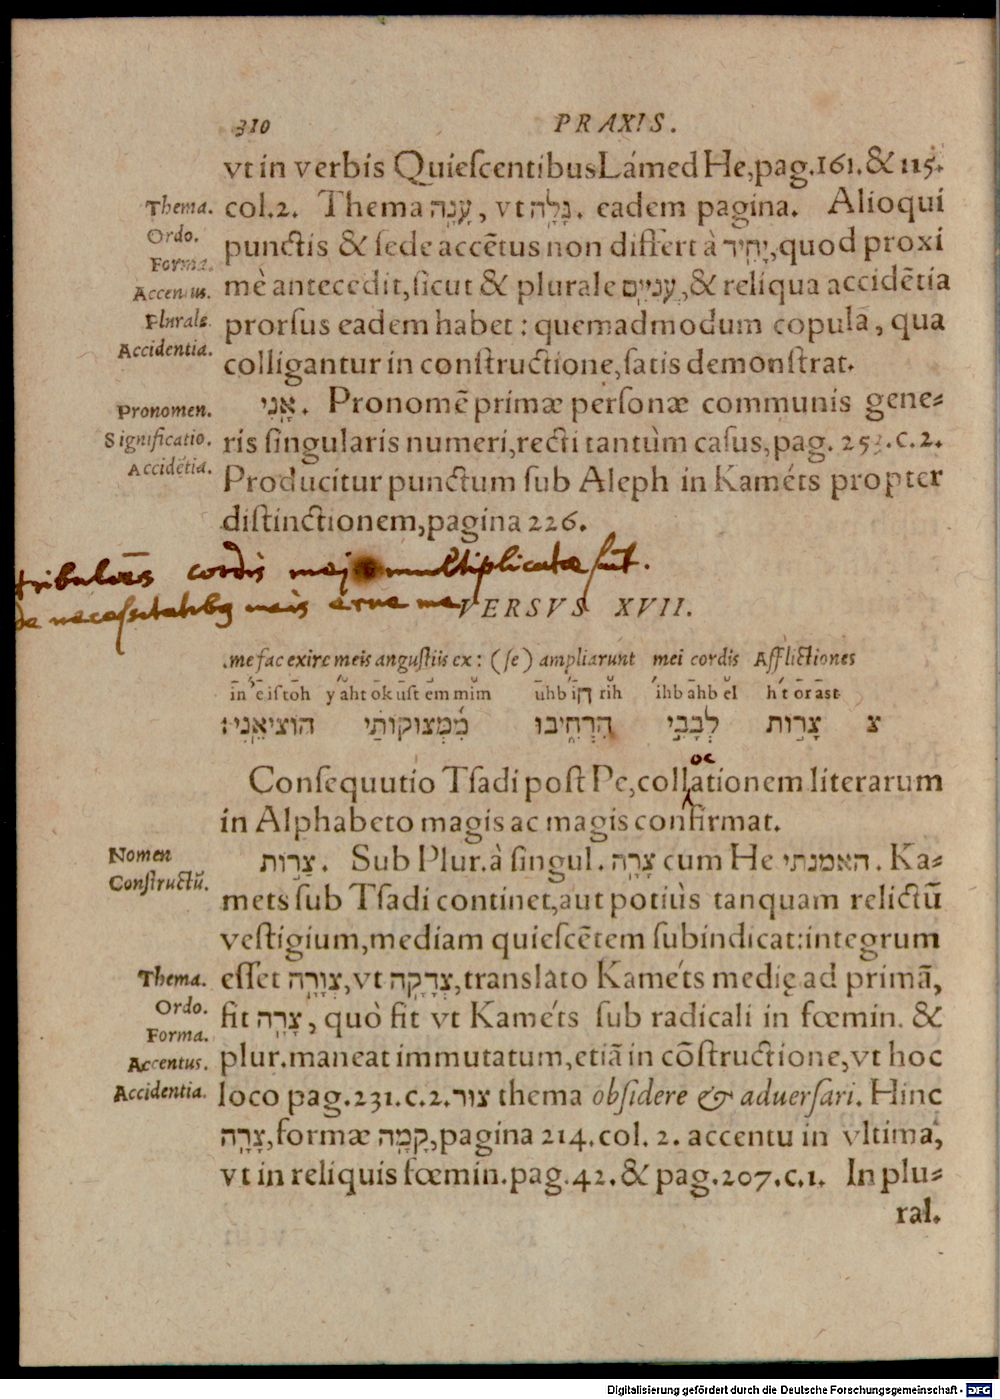 310 PRAXIS.
vt in verbis Quiescentibus Lámed He, pag. 161. & 115.
Thema. col. 2. Thema עָנָה, vt גָּלָה. eadem pagina. Alioqui
Ordo. punctis & sede accẽtus non differt à יָחִיד, quod proxi
Forma.
Accentus. mè antecedit, sicut & plurale עֲנִיִּים, & reliqua accidẽtia
Plurale. prorsus eadem habet: quemadmodum copula, qua
Accidentia. colligantur in constructione, satis demonstrat.
Pronomen. אָנִי. Pronomẽ primæ personæ communis gene⸗
Significatio. ris singularis numeri, recti tantùm casus, pag. 253. c. 2.
Accidẽtia. Producitur punctum sub Aleph in Kaméts propter
distinctionem, pagina 226.
cordis mei multiplicatæ sũt.
de necessitatibus meis erue me
VERSVS XVII.
.me fac exire meis angustiis ex: (se) ampliarunt mei cordis Afflictiones
צ צָרוֹת לְבָבִי הִרְחִיבוּ מִמְּצוּקוֹתַי הוֹצִיאֵנִי:
Consequutio Tsadi post Pe, collationem literarum
oc
in Alphabeto magis ac magis confirmat.
Nomen צָרוֹת. Sub Plur. à singul. צָרָה cum He האמנתי. Ka⸗
Constructũ. mets sub Tsadi continet, aut potiùs tanquam relictũ
vestigium, mediam quiescẽtem subindicat: integrum
Thema. esset צְוָרָה, vt צְדָקָה, translato Kaméts medię ad primã,
Ordo. fit צָרָה, quò fit vt Kaméts sub radicali in fœmin. &
Forma.
Accentus. plur. maneat immutatum, etiã in cõstructione, vt hoc
Accidentia. loco pag. 231. c. 2. צור thema obsidere & aduersari. Hinc
צָרָה, formæ קָמָה, pagina 214. col. 2. accentu in vltima,
vt in reliquis fœmin. pag. 42. & pag. 207. c. 1. In plu⸗
ral.
Digitalisierung gefördert durch die Deutsche Forschungsgemeinschaft - DFG